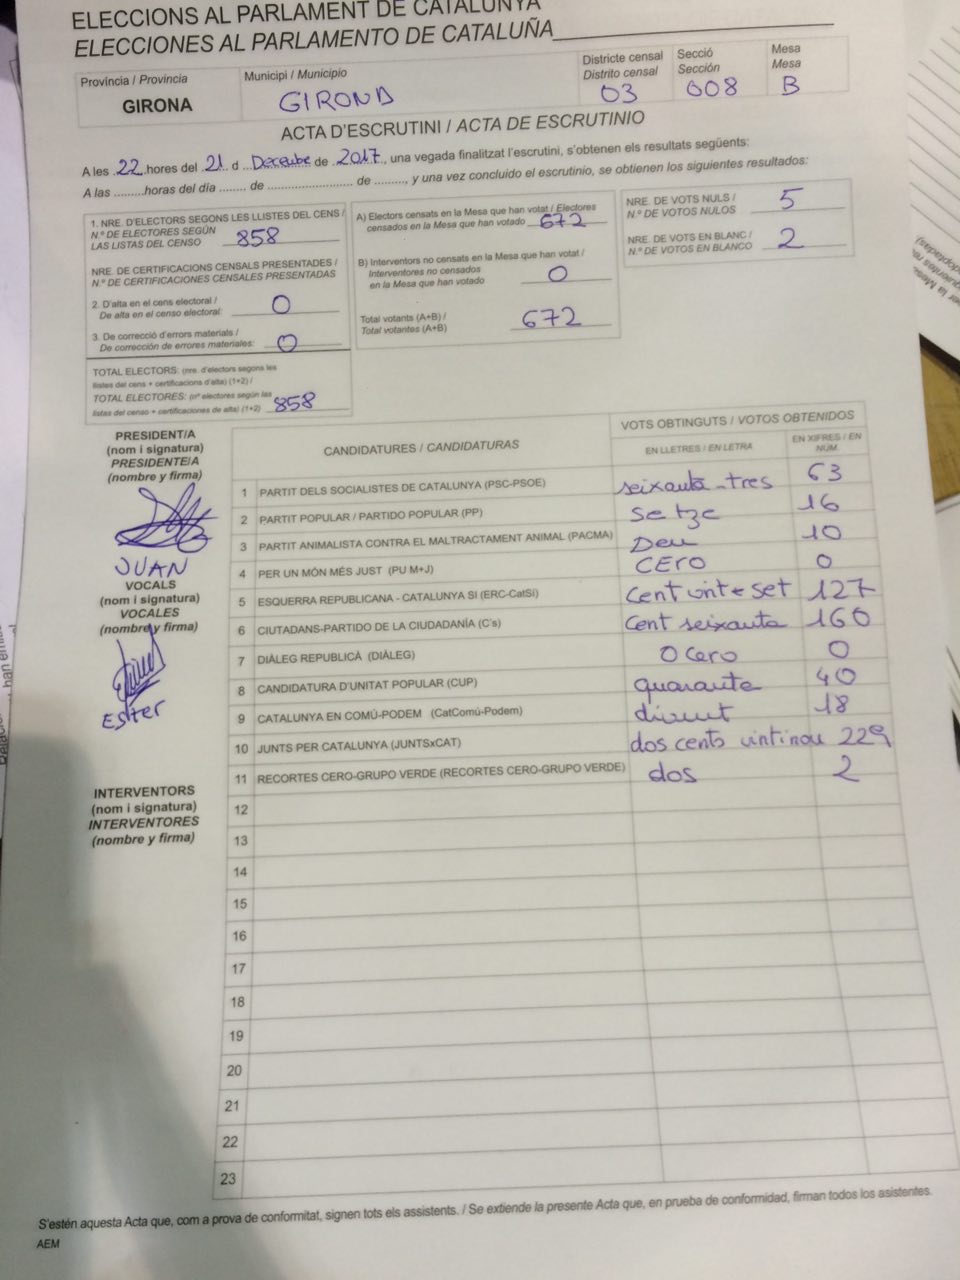 ELECCIONS AL PARLAMENT DE CATALUNYA
ELECCIONES AL PARLAMENTO DE CATALUÑA
Provincia / Provincia
GIRONA
Municipi / Municipio
GIRONA
Districte censal
Distrito censal
03
Secció
Sección
008
Mesa
Mesa
B
ACTA D'ESCRUTINI / ACTA DE ESCRUTINIO
A les 22 hores del 21 d Decembe de 2017, una vegada finalitzat l'escrutini, s'obtenen els resultats següents:
A las .........horas del día ....... de ....................... de ........, y una vez concluido el escrutinio, se obtienen los siguientes resultados:
1. NRE. D'ELECTORS SEGONS LES LLISTES DEL CENS /
N.º DE ELECTORES SEGÚN
LAS LISTAS DEL CENSO 858
NRE. DE CERTIFICACIONS CENSALS PRESENTADES /
N.º DE CERTIFICACIONES CENSALES PRESENTADAS
2. D'alta en el cens electoral /
De alta en el censo electoral: 0
3. De correcció d'errors materials /
De corrección de errores materiales: 0
TOTAL ELECTORS: (nre. d'electors segons les
llistes del cens + certificacions d'alta) (1+2) /
TOTAL ELECTORES: (nº electores según las
listas del censo + certificaciones de alta) (1+2) 858
A) Electors censats en la Mesa que han votat / Electores
censados en la Mesa que han votado 672
B) Interventors no censats en la Mesa que han votat /
Interventores no censados
en la Mesa que han votado 0
Total votants (A+B) /
Total votantes (A+B) 672
NRE. DE VOTS NULS /
N.º DE VOTOS NULOS 5
NRE. DE VOTS EN BLANC /
N.º DE VOTOS EN BLANCO 2
PRESIDENT/A
(nom i signatura)
PRESIDENTE/A
(nombre y firma)
JUAN
VOCALS
(nom i signatura)
VOCALES
(nombre y firma)
ESTER
INTERVENTORS
(nom i signatura)
INTERVENTORES
(nombre y firma)
CANDIDATURES / CANDIDATURAS
VOTS OBTINGUTS / VOTOS OBTENIDOS
EN LLETRES / EN LETRA
EN XIFRES / EN
NÚM.
1 PARTIT DELS SOCIALISTES DE CATALUNYA (PSC-PSOE) seixanta-tres 63
2 PARTIT POPULAR / PARTIDO POPULAR (PP) setze 16
3 PARTIT ANIMALISTA CONTRA EL MALTRACTAMENT ANIMAL (PACMA) Deu 10
4 PER UN MÓN MÉS JUST (PU M+J) CERO 0
5 ESQUERRA REPUBLICANA - CATALUNYA SI (ERC-CatSí) Cent vint-e set 127
6 CIUTADANS-PARTIDO DE LA CIUDADANÍA (C's) Cent seixanta 160
7 DIÀLEG REPUBLICÀ (DIÀLEG) 0 Cero 0
8 CANDIDATURA D'UNITAT POPULAR (CUP) quaranta 40
9 CATALUNYA EN COMÚ-PODEM (CatComú-Podem) divuit 18
10 JUNTS PER CATALUNYA (JUNTSxCAT) dos cents vintinou 229
11 RECORTES CERO-GRUPO VERDE (RECORTES CERO-GRUPO VERDE) dos 2
12
13
14
15
16
17
18
19
20
21
22
23
S'estén aquesta Acta que, com a prova de conformitat, signen tots els assistents. / Se extiende la presente Acta que, en prueba de conformidad, firman todos los asistentes.
AEM